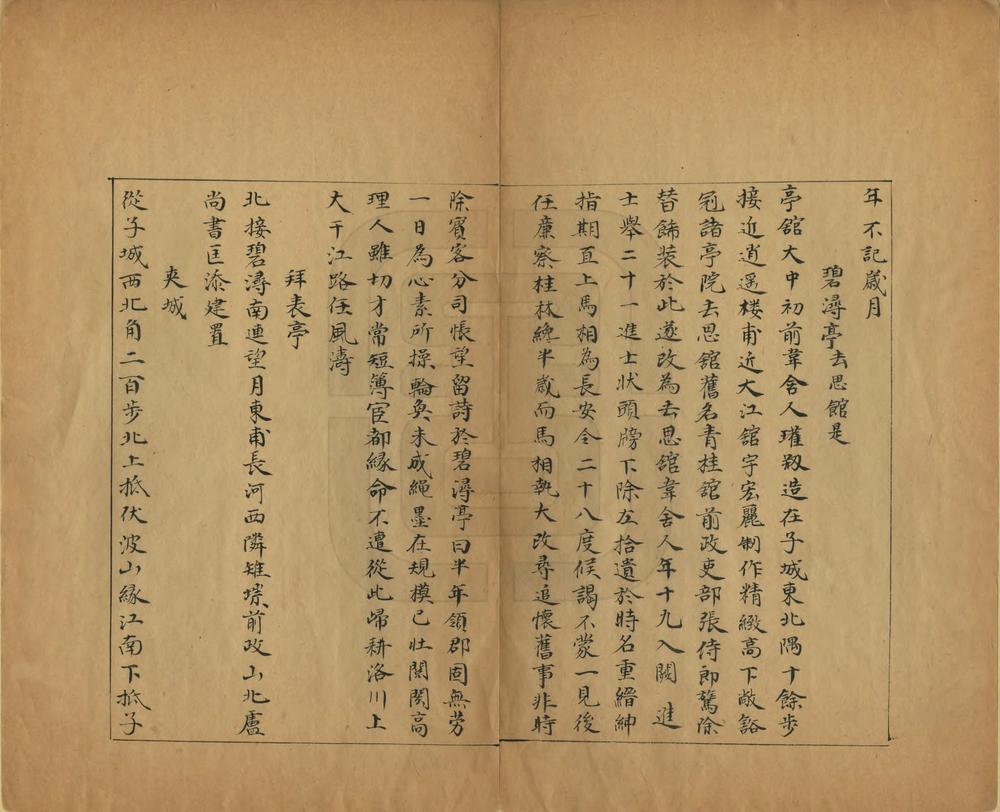 年不記歲月
碧潯亭去思館是
亭舘大中初前韋舍人瓘剏造在子城東北隅十餘步
接近逍遥楼甫近大江舘宇宏麗制作精緻高下敞豁
冠諸亭院去思舘舊名青桂舘前政吏部張侍郎鷟除
替餙装於此遂改為去思舘韋舍人年十九入關進
士舉二十一進士狀頭牓下除左拾遺於時名重縉紳
指期直上馬相為長安令二十八度候謁不蒙一見後
任亷察桂林纔半歲而馬相執大改尋追懷舊事非時
除賓客分司悵望留詩於碧潯亭曰半年領郡固無劳
一日為心素所操輪奐未成䋲墨在規模已壮閈閎高
理人雖切才常短薄宦都緣命不遭從此歸耕洛川上
大千江路任風濤
拜表亭
北接碧潯南連望月東甫長河西隣雉堞前政山北盧
尚書匡添建置
夾城
從子城西北角二百步北上抵伏波山緣江南下抵子